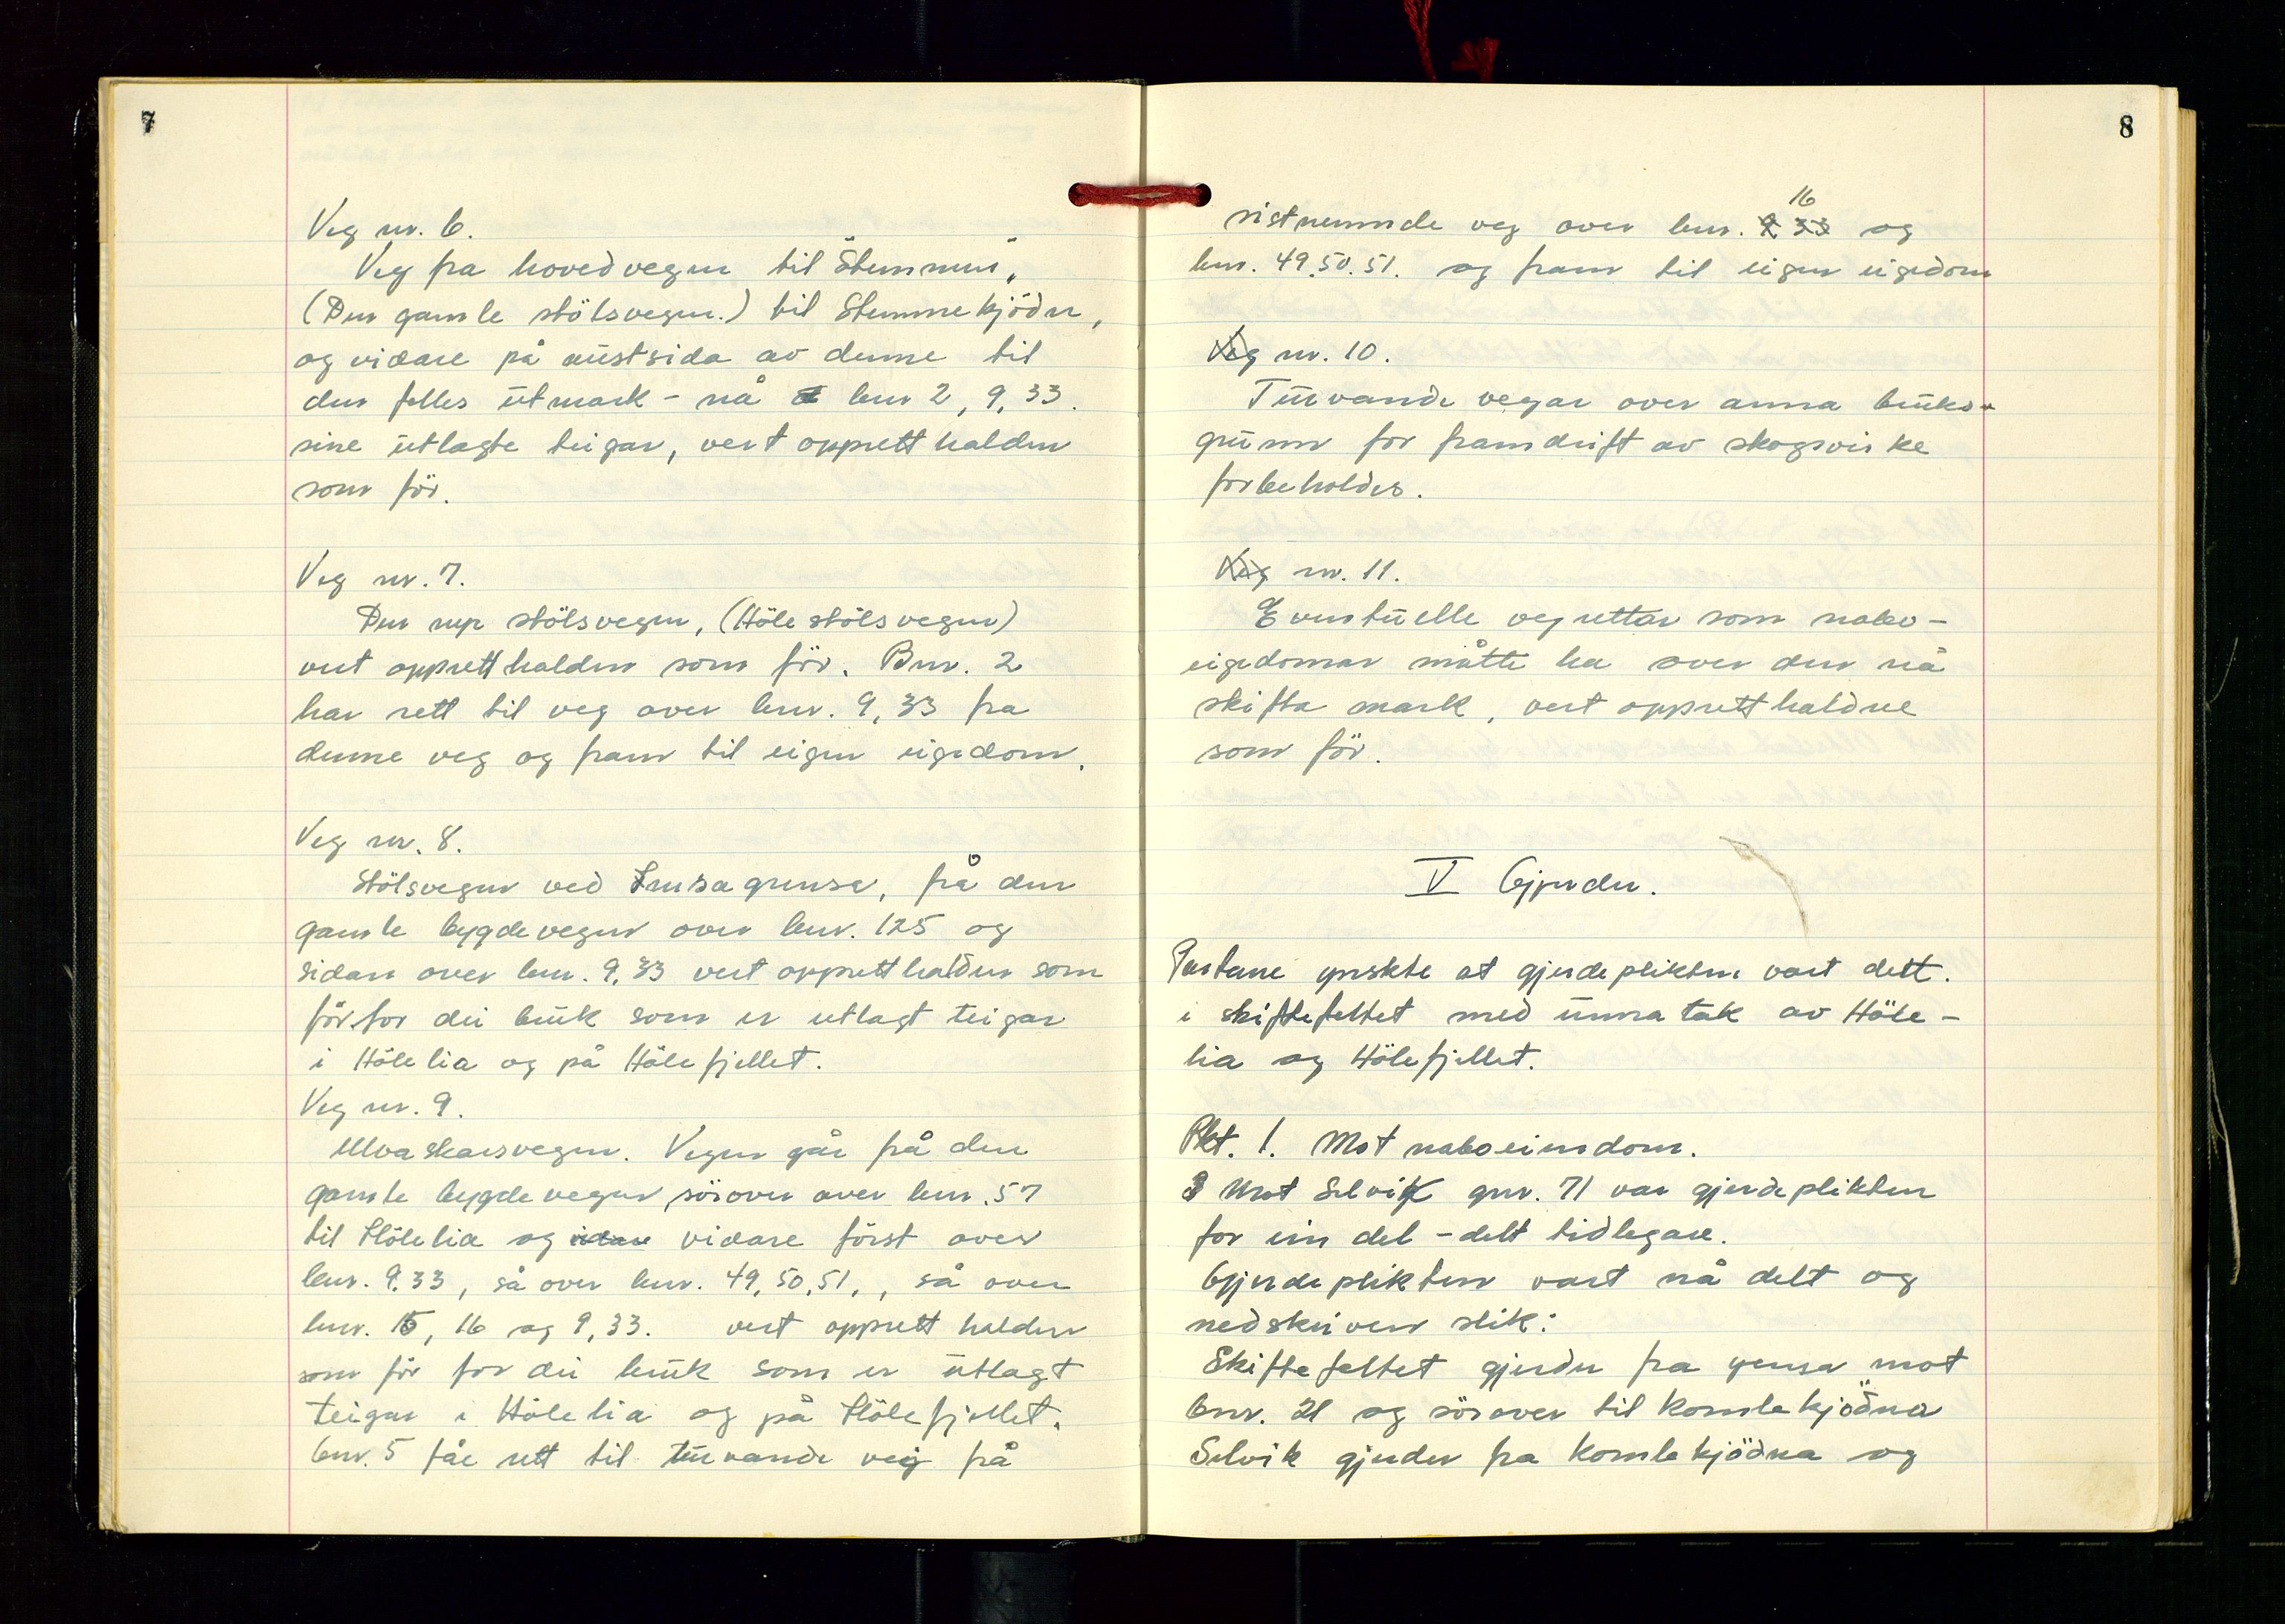 7
Veg nr. 6.
Veg fra hovedvegen til "Stemmen"
(Den gamle stölsvegen.) til Stemmekjödn,
og vidare på austsida av denne til
den felles utmark - nå bnr 2, 9, 33.
sine utlagte teigar, vert oppretthalden
som för.
Veg nr. 7.
Den nye stölsvegen, (Höle stölsvegen)
vert oppretthalden som för. Bnr. 2
har rett til veg over bnr. 9, 33 fra
denne veg og fram til eigen eigedom.
Veg nr. 8.
Stölsvegen ved grensa, frå den
gamle bygdevegen over bnr. 125 og
sidan over bnr. 9, 33 vert oppretthalden som
för for dei bruk som er utlagt teigar
i Hölelia og på Hölefjellet.
Veg nr. 9.
Ulvaskarsvegen. Vegen går frå den
gamle bygdevegen sörover over bnr. 57
til Hölelia og vidare först over
bnr. 9.33, så over bnr. 49, 50, 51, , så over
bnr. 15, 16 og 9, 33. vert oppretthalden
som för for dei bruk som er utlagt
teigar i Hölelia og på Hölefjellet.
bnr. 5 får rett til turvande veg på
8
sistnemnde veg over bnr. 9 33 16 og
bnr. 49.50.51. og fram til eigen eigedom
Veg nr. 10.
Turvande vegar over anna bruks-
grunn for framdrift av skogsvirke
forbeholdes.
Veg nr. 11.
Eventuelle vegrettar som nabo-
eigedomar måtte ha over den nå
skifta mark, vert oppretthaldne
som för.
V Gjerder.
Partane ynskte at gjerdeplikten vart delt.
i skiftefeltet med unnatak av Höle-
lia og Hölefjellet.
Pkt. 1. Mot naboeiendom.
Mot Selvik gnr. 71 var gjerdeplikten
for ein del - delt tidlegare.
Gjerdeplikten vart nå delt og
nedskriven slik:
Skiftefeltet gjerder fra grensa mot
bnr. 21 og sörover til Komlekjödna
Selvik gjerder fra Komlekjödna og